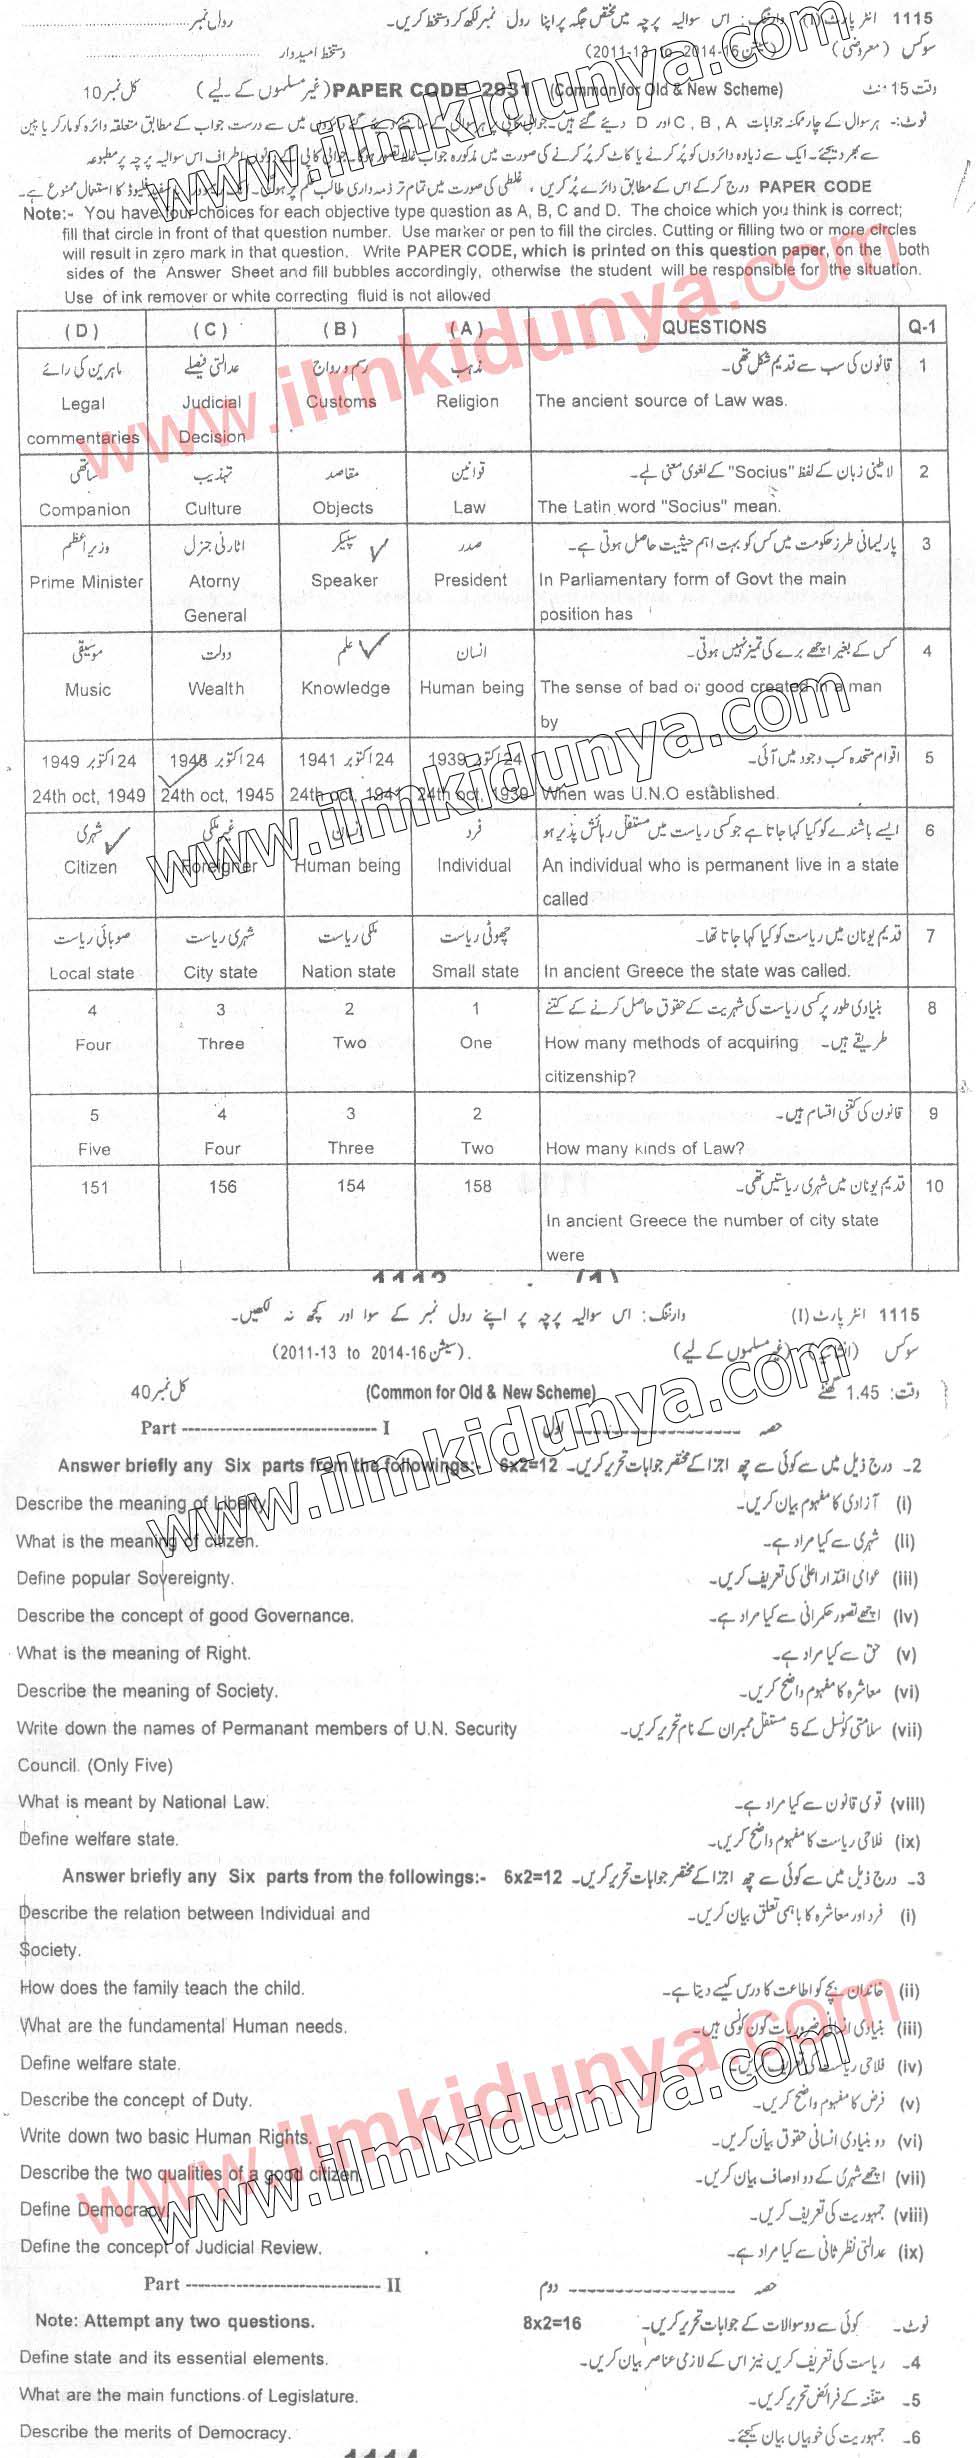 1115 انٹر پارٹ (I) وارننگ: اس سوالیہ پرچہ میں مختص جگہ پر اپنا رول نمبر لکھ کر دستخط کریں۔ رول نمبر
سوکس (معروضی) (سیشن 2014-16 to 2011-13) دستخط امیدوار
وقت 15 منٹ (Common for Old & New Scheme) PAPER CODE 2931 (غیر مسلموں کے لیے) کل نمبر 10
نوٹ:- ہر سوال کے چار ممکنہ جوابات A ، B ، C اور D دیئے گئے ہیں۔ جوابی کاپی پر ہر سوال کے سامنے دیئے گئے دائروں میں سے درست جواب کے مطابق متعلقہ دائرہ کو مارکر یا پین
سے بھر دیجئے۔ ایک سے زیادہ دائروں کو پُر کرنے یا کاٹ کر پُر کرنے کی صورت میں مذکورہ جواب غلط تصور ہوگا۔ جوابی کاپی کے دونوں اطراف اس سوالیہ پرچہ پر مطبوعہ
PAPER CODE درج کر کے اس کے مطابق دائرے پُر کریں، غلطی کی صورت میں تمام تر ذمہ داری طالب علم پر ہوگی۔ کا استعمال ممنوع ہے۔
Note:- You have four choices for each objective type question as A, B, C and D. The choice which you think is correct;
fill that circle in front of that question number. Use marker or pen to fill the circles. Cutting or filling two or more circles
will result in zero mark in that question. Write PAPER CODE, which is printed on this question paper, on the both
sides of the Answer Sheet and fill bubbles accordingly, otherwise the student will be responsible for the situation.
Use of ink remover or white correcting fluid is not allowed
(D) (C) (B) (A) QUESTIONS Q-1
ماہرین کی رائے عدالتی فیصلے رسم و رواج مذہب قانون کی سب سے قدیم شکل تھی۔ 1
Legal Judicial Customs Religion The ancient source of Law was.
commentaries Decision
ساتھی تہذیب مقاصد قوانین لاطینی زبان کے لفظ "Socius" کے لغوی معنی ہے۔ 2
Companion Culture Objects Law The Latin word "Socius" mean.
وزیر اعظم اٹارنی جنرل سپیکر صدر پارلیمانی طرز حکومت میں کس کو بہت اہم حیثیت حاصل ہوتی ہے۔ 3
Prime Minister Atorny Speaker President In Parliamentary form of Govt the main
General position has
موسیقی دولت علم انسان کس کے بغیر اچھے برے کی تمیز نہیں ہوتی۔ 4
Music Wealth Knowledge Human being The sense of bad or good created in a man
by
24 اکتوبر 1949 24 اکتوبر 1945 24 اکتوبر 1941 24 اکتوبر 1939 اقوام متحدہ کب وجود میں آئی۔ 5
24th oct, 1949 24th oct, 1945 24th oct, 1941 24th oct, 1939 When was U.N.O established.
شہری غیر ملکی انسان فرد ایسے باشندے کو کیا کہا جاتا ہے جو کسی ریاست میں مستقل رہائش پذیر ہو 6
Citizen Foreigner Human being Individual An individual who is permanent live in a state
called
صوبائی ریاست شہری ریاست ملکی ریاست چھوٹی ریاست قدیم یونان میں ریاست کو کیا کہا جاتا تھا۔ 7
Local state City state Nation state Small state In ancient Greece the state was called.
4 3 2 1 بنیادی طور پر کسی ریاست کی شہریت کے حقوق حاصل کرنے کے کتنے 8
Four Three Two One How many methods of acquiring طریقے ہیں۔
citizenship?
5 4 3 2 قانون کی کتنی اقسام ہیں۔ 9
Five Four Three Two How many kinds of Law?
151 156 154 158 قدیم یونان میں شہری ریاستیں تھی۔ 10
In ancient Greece the number of city state
were
1115 انٹر پارٹ (I) وارننگ: اس سوالیہ پرچہ پر اپنے رول نمبر کے سوا اور کچھ نہ لکھیں۔
سوکس (انشائیہ) (غیر مسلموں کے لیے) (سیشن 2014-16 to 2011-13).
وقت: 1.45 گھنٹے (Common for Old & New Scheme) کل نمبر 40
Part ------------------------------- I حصہ -------------------- اول
Answer briefly any Six parts from the followings:- 6x2=12 2۔ درج ذیل میں سے کوئی سے چھ اجزا کے مختصر جوابات تحریر کریں۔
Describe the meaning of Liberty. (i) آزادی کا مفہوم بیان کریں۔
What is the meaning of citizen. (ii) شہری سے کیا مراد ہے۔
Define popular Sovereignty. (iii) عوامی اقتدار اعلیٰ کی تعریف کریں۔
Describe the concept of good Governance. (iv) اچھے تصور حکمرانی سے کیا مراد ہے۔
What is the meaning of Right. (v) حق سے کیا مراد ہے۔
Describe the meaning of Society. (vi) معاشرہ کا مفہوم واضح کریں۔
Write down the names of Permanant members of U.N. Security (vii) سلامتی کونسل کے 5 مستقل ممبران کے نام تحریر کریں۔
Council. (Only Five)
What is meant by National Law. (viii) قومی قانون سے کیا مراد ہے۔
Define welfare state. (ix) فلاحی ریاست کا مفہوم واضح کریں۔
Answer briefly any Six parts from the followings:- 6x2=12 3۔ درج ذیل میں سے کوئی سے چھ اجزا کے مختصر جوابات تحریر کریں۔
Describe the relation between Individual and (i) فرد اور معاشرہ کا باہمی تعلق بیان کریں۔
Society.
How does the family teach the child. (ii) خاندان بچے کو اطاعت کا درس کیسے دیتا ہے۔
What are the fundamental Human needs. (iii) بنیادی انسانی ضروریات کون کونسی ہیں۔
Define welfare state. (iv) فلاحی ریاست کی تعریف کریں۔
Describe the concept of Duty. (v) فرض کا مفہوم واضح کریں۔
Write down two basic Human Rights. (vi) دو بنیادی انسانی حقوق بیان کریں۔
Describe the two qualities of a good citizen. (vii) اچھے شہری کے دو اوصاف بیان کریں۔
Define Democracy. (viii) جمہوریت کی تعریف کریں۔
Define the concept of Judicial Review. (ix) عدالتی نظر ثانی سے کیا مراد ہے۔
Part ------------------------------- II حصہ -------------------- دوم
Note: Attempt any two questions. 8x2=16 نوٹ۔ کوئی سے دو سوالات کے جوابات تحریر کریں۔
Define state and its essential elements. 4۔ ریاست کی تعریف کریں نیز اس کے لازمی عناصر بیان کریں۔
What are the main functions of Legislature. 5۔ مقننہ کے فرائض تحریر کریں۔
Describe the merits of Democracy. 6۔ جمہوریت کی خوبیاں بیان کیجئے۔
www.ilmkidunya.com
www.ilmkidunya.com
www.ilmkidunya.com
www.ilmkidunya.com
www.ilmkidunya.com
www.ilmkidunya.com